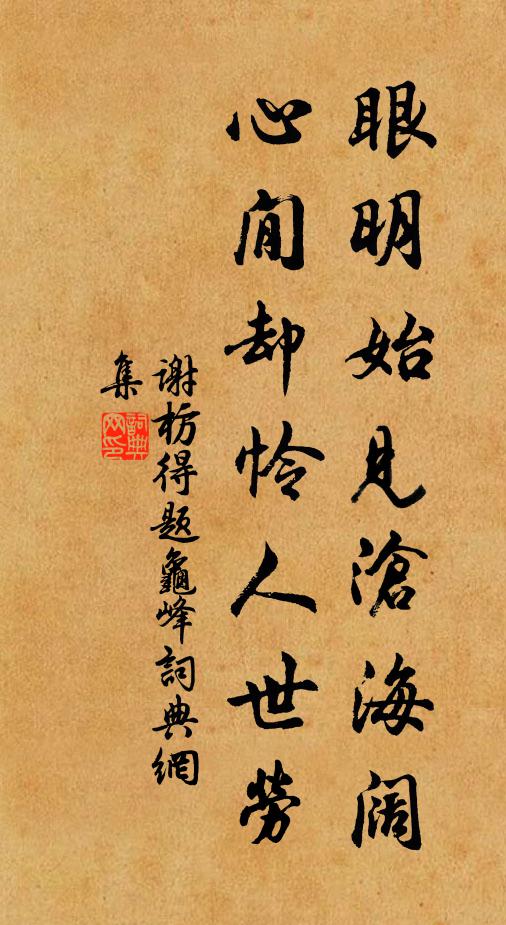 眼明始見滄海阔
心閒却怜人世勞
謝枋得題龜峰詞典網
集
詞典
网印